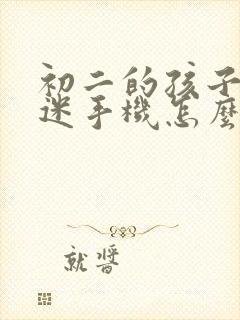 初二的孩子
迷手機怎麼
就醬